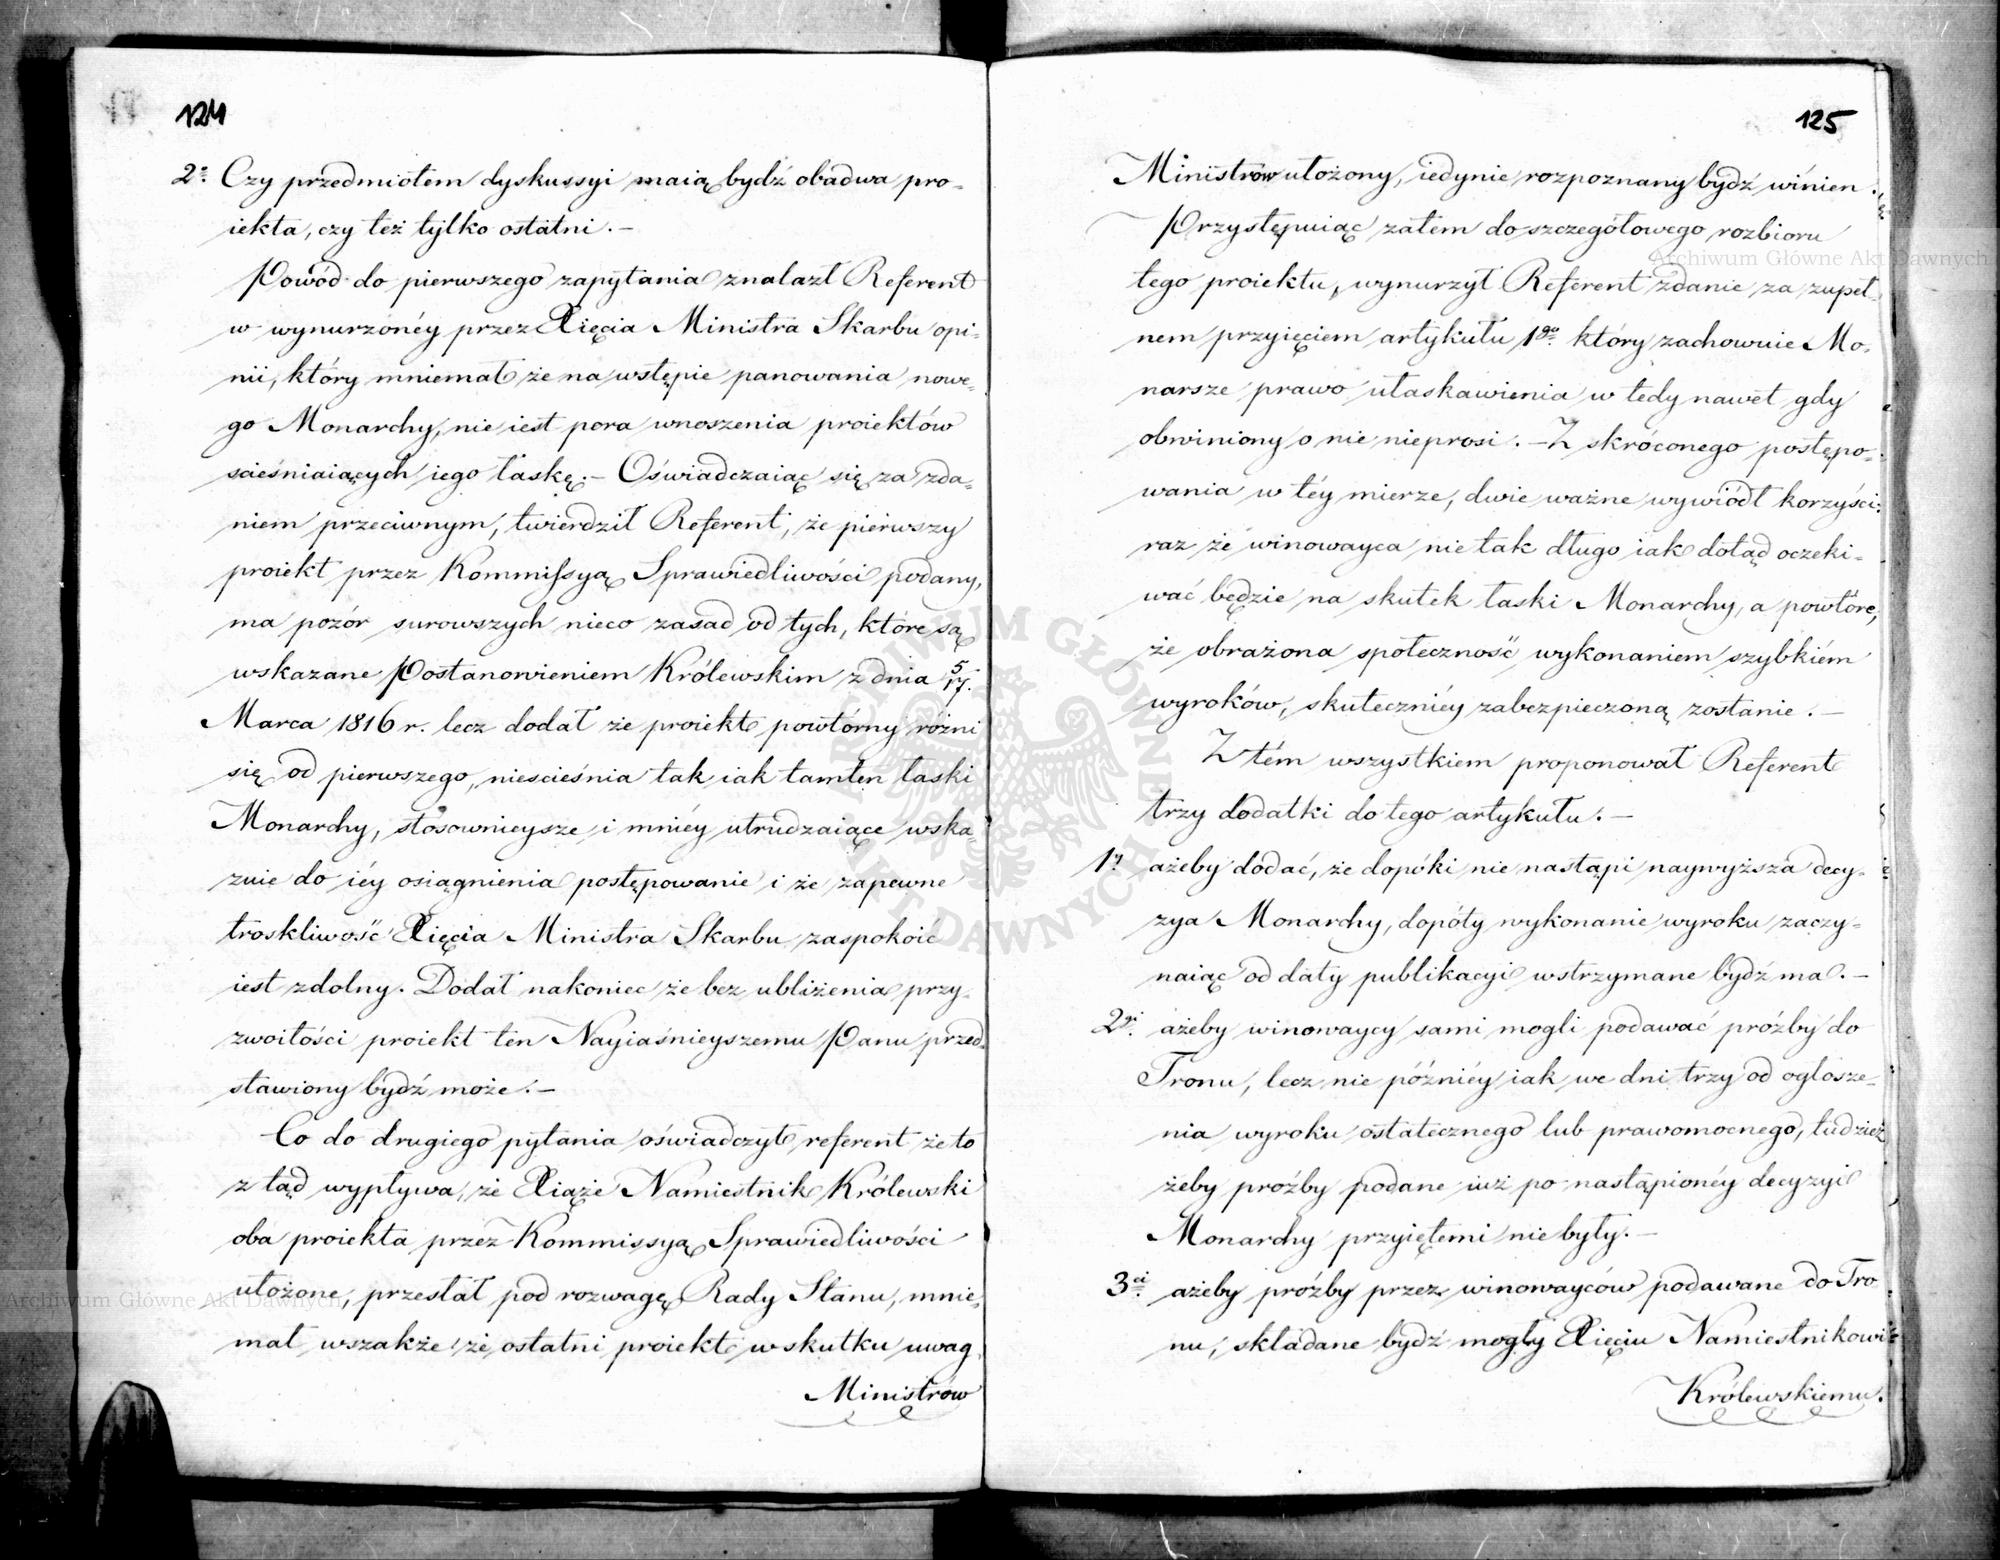 124
2e. Czy przedmiotem dyskussyi maią bydź obadwa pro-
iekta, czy też tylko ostatni. –
Powód do pierwszego zapytania znalazł Referent
w wynurzonéy przez Xięcia Ministra Skarbu opi-
nii, który mniemał że na wstępie panowania nowe-
go Monarchy, nie iest pora wnoszenia proiektów
scieśniaiących iego łaskę. – Oświadczaiąc się za zda-
niem przeciwnym, twierdził Referent, że piérwszy
proiekt przez Kommissyą Sprawiedliwości podany,
ma pozór surowszych nieco zasad od tych, które są
wskazane Postanowieniem Królewskim z dnia 5/17.
Marca 1816 r. lecz dodał że proiekt powtórny różni
się od pierwszego, niescieśnia tak iak tamten łaski
Monarchy, stósownieysze i mniéy utrudzaiące wska-
zuie do iéy osiągnienia postępowanie i że zapewne
troskliwość Xięcia Ministra Skarbu zaspokoić
iest zdolny. Dodał nakoniec że bez ubliżenia przy-
zwoitości proiekt ten Nayiaśnieyszemu Panu przed-
stawiony bydź może. –
Co do drugiego pytania oświadczył referent że to
z tąd wypływa, że Xiążę Namiestnik Królewski
oba proiekta przez Kommissyą Sprawiedliwości
ułożone, przesłał pod rozwagę Rady Stanu, mnie-
mał wszakże że ostatni proiekt w skutku uwag
Ministrów
125
Ministrów ułożony, iedynie rozpoznany bydź winien.
Przystępuiąc zatem do szczegółowego rozbioru
tego proiektu, wynurzył Referent zdanie za zupeł-
nem przyięciem artykułu 1go. który zachowuie Mo-
narsze prawo ułaskawienia w tedy nawet gdy
obwiniony o nie nieprosi. – Z skróconego postępo-
wania w téy mierze, dwie ważne wywiódł korzyści:
raz że winowayca nie tak długo iak dotąd oczeki-
wać będzie na skutek łaski Monarchy, a powtóre,
że obrażona społeczność wykonaniem szybkiém
wyroków, skuteczniéy zabezpieczoną zostanie. –
Z tém wszystkiem proponował Referent
trzy dodatki do tego artykułu. –
1y. ażeby dodać, że dopóki nie nastąpi naywyższa decy-
zya Monarchy, dopóty wykonanie wyroku zaczy-
naiąc od daty publikacyi wstrzymane bydź ma. –
2gi. ażeby winowaycy sami mogli podawać próźby do
Tronu, lecz nie późniéy iak we dni trzy od ogłosze-
nia wyroku ostatecznego lub prawomocnego, tudzież
żeby próźby podane iuż po nastąpionéy decyzyi
Monarchy przyiętemi nie były. –
3ci. ażeby próźby przez winowayców podawane do Tro
nu, składane bydź mogły Xięciu Namiestnikowi
Królewskiemu.
Archiwum Główne Akt Dawnych
Archiwum Główne Akt Dawnych
ARCHIWUM GŁÓWNE AKT DAWNYCH